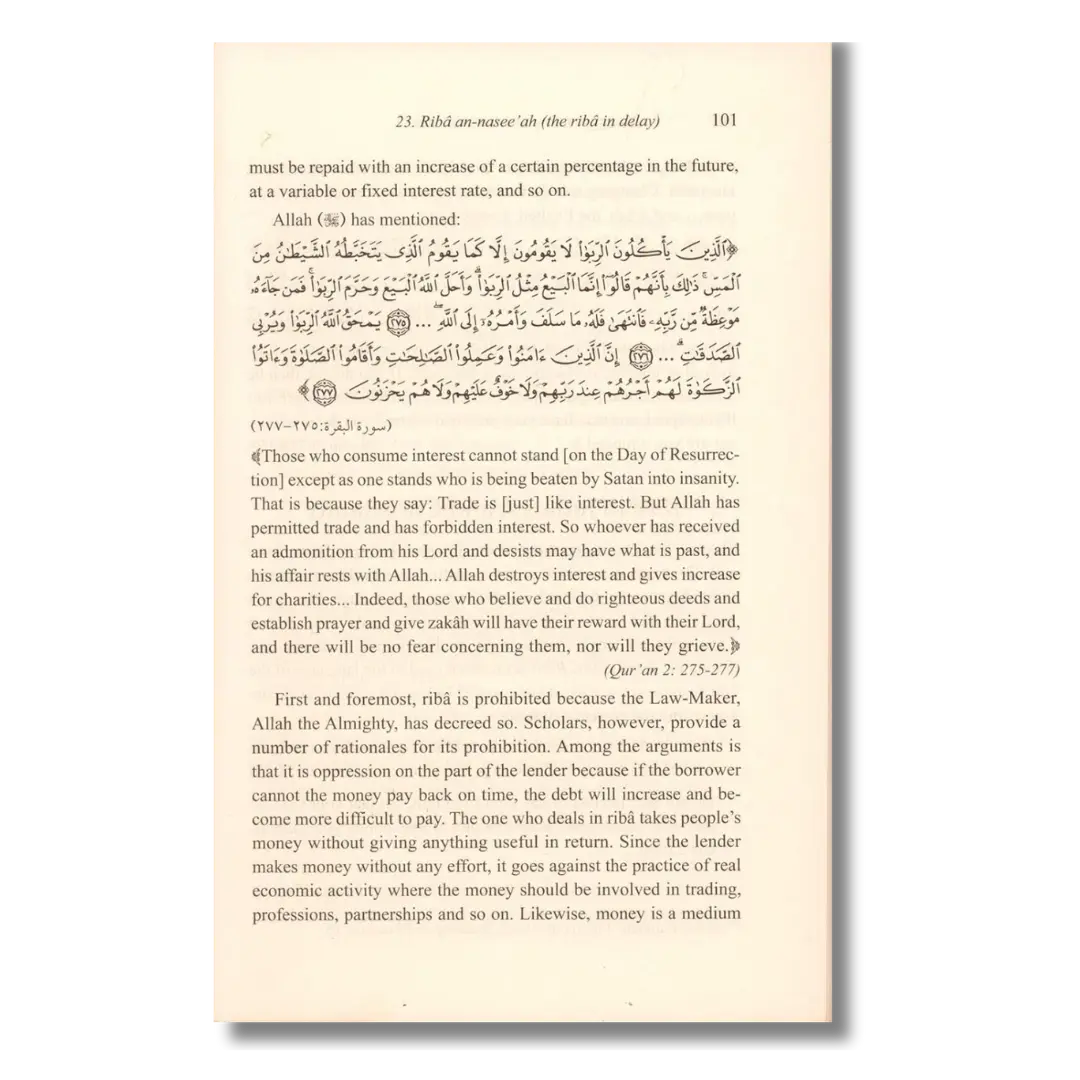 23. Ribâ an-nasee’ah (the ribâ in delay) 101
must be repaid with an increase of a certain percentage in the future,
at a variable or fixed interest rate, and so on.
Allah (ﷻ) has mentioned:
﴿ٱلَّذِينَ يَأْكُلُونَ ٱلرِّبَوٰا۟ لَا يَقُومُونَ إِلَّا كَمَا يَقُومُ ٱلَّذِى يَتَخَبَّطُهُ ٱلشَّيْطَـٰنُ مِنَ
ٱلْمَسِّ ۚ ذَٰلِكَ بِأَنَّهُمْ قَالُوٓا۟ إِنَّمَا ٱلْبَيْعُ مِثْلُ ٱلرِّبَوٰا۟ ۗ وَأَحَلَّ ٱللَّهُ ٱلْبَيْعَ وَحَرَّمَ ٱلرِّبَوٰا۟ ۚ فَمَن جَآءَهُۥ
مَوْعِظَةٌ مِّن رَّبِّهِۦ فَٱنتَهَىٰ فَلَهُۥ مَا سَلَفَ وَأَمْرُهُۥٓ إِلَى ٱللَّهِ ۖ ... ٢٧٥ يَمْحَقُ ٱللَّهُ ٱلرِّبَوٰا۟ وَيُرْبِى
ٱلصَّدَقَـٰتِ ۗ ... ٢٧٦ إِنَّ ٱلَّذِينَ ءَامَنُوا۟ وَعَمِلُوا۟ ٱلصَّـٰلِحَـٰتِ وَأَقَامُوا۟ ٱلصَّلَوٰةَ وَءَاتَوُا۟
ٱلزَّكَوٰةَ لَهُمْ أَجْرُهُمْ عِندَ رَبِّهِمْ وَلَا خَوْفٌ عَلَيْهِمْ وَلَا هُمْ يَحْزَنُونَ ٢٧٧﴾
(سورة البقرة: ٢٧٥-٢٧٧)
﴾Those who consume interest cannot stand [on the Day of Resurrec-
tion] except as one stands who is being beaten by Satan into insanity.
That is because they say: Trade is [just] like interest. But Allah has
permitted trade and has forbidden interest. So whoever has received
an admonition from his Lord and desists may have what is past, and
his affair rests with Allah... Allah destroys interest and gives increase
for charities... Indeed, those who believe and do righteous deeds and
establish prayer and give zakâh will have their reward with their Lord,
and there will be no fear concerning them, nor will they grieve.﴿
(Qur’an 2: 275-277)
First and foremost, ribâ is prohibited because the Law-Maker,
Allah the Almighty, has decreed so. Scholars, however, provide a
number of rationales for its prohibition. Among the arguments is
that it is oppression on the part of the lender because if the borrower
cannot the money pay back on time, the debt will increase and be-
come more difficult to pay. The one who deals in ribâ takes people’s
money without giving anything useful in return. Since the lender
makes money without any effort, it goes against the practice of real
economic activity where the money should be involved in trading,
professions, partnerships and so on. Likewise, money is a medium